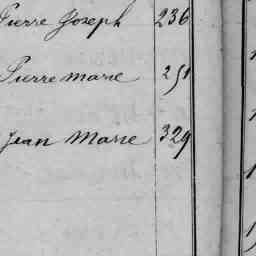 Pierre Joseph 236
Pierre marie 251
Jean Marie 329